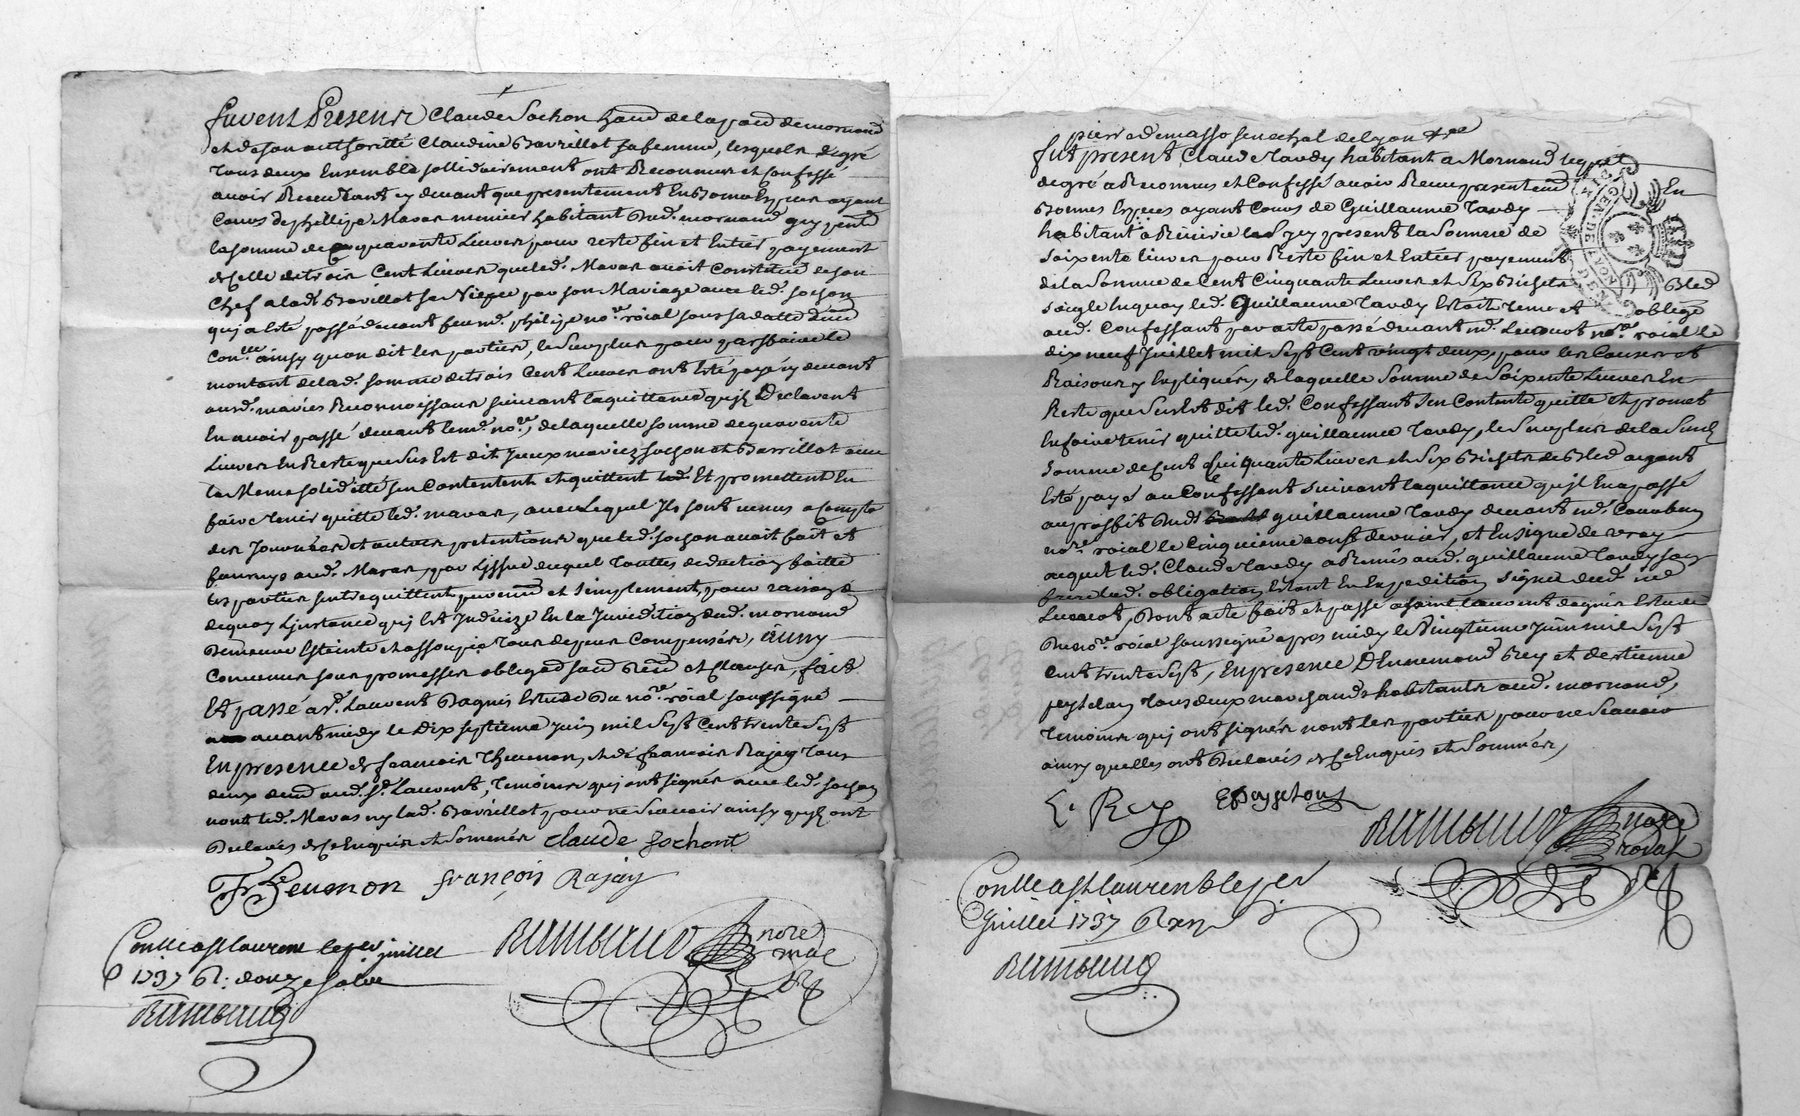 furent Presents Claude Sochon hant de la par de mornand
et de son authoritté Claudine Barrillot sa femme, lesquels de gré
tous deux Ensemble sollidairement ont Reconnus et Confessé
avoir Receu tant cy devant que presentement En Bonnes Especes ayant
Cours de phellipe Mavas menier habitant Dud. mornand icy pnt
la somme de quarente Livres pour reste fin et Entier payement
de Celle de trois Cent Livres que led. Mavas avoit Constitué de son
Chef a lad. Barillot sa Niepce par son Mariage avec led. sochon
quj a esté passé devant feu me. philipe nore. roial sous sa datte Dûe
Conllé. ainsy quon dit les parties, le Surplus pour parfaire le
montant de lad. somme de trois Cent Livres ont Esté payé cy devant
ausd. mariés Reconnoissans suivant la quittance qujls Declarent
En avoir passé devant le me. nore, de laquelle somme de quarente
Livres En Reste que Sus Est dit Jceux mariez sochon et Barrillot avec
la Meme solidité sen Contentent et quittent led. Et promettent En
faire tenir quitte led. mavas, avec lequel Jls sont venus a Compte
des Journées et autres pretentions que led. sochon avoit fait et
fournys aud. Mavas, par Lissue duquel touttes deductions faitte
les parties sentrequittent purement et simplement, pour raison
dequoy Linstance quj Est Indécize En la Jurediction dud. mornand
Demeure Esteinte et assoupie tous depens Compensés, Ainsy
Convenus sous promesses obligaõn sermt Renõn et Clauses, fait
Et passé a st. Laurent Dagnis Estude Du nore. roial soussigné
avant midy le Dix septieme Juin mil Sept Cent trente Sept
En presence de francois Thevenon, et de francois Rajay tous
deux demt aud. St. Laurent, temoins quj ont signés avec led. sochon
non led. Mavas ny lad. Barrillot pour ne Scavoir ainsy qujls ont
Declarés de Ce Enquis et Sommés Claude Sochont
Fr Thevenon françois Rajay
Conllé a st laurent le per juillet
1737 R: douze sols
nore
roial
pierre demasso senechal de lyon
fut present Claude tardy habitant a Mornand lequel
de gré a Reconnus et Confessé avoir Receu presentemt En
Bonnes Especes ayant Cours de Guillaume tardy
habitant a Riverie icy present la Somme de
Soixente livres pour Reste fin et Entier payement
de la Somme de Cent Cinquante Livres et Six Bichets Bled
Seigle En quoy led. Guillaume tardy Estoit tenu et obligé
aud. Confessant par acte passé devant me. nore. roial le
dix neuf Juillet mil Sept Cent vingt deux, pour les Causes et
Raisons y Expliquées, de laquelle Somme de Soixente Livres En
Reste que Sus Est dit led. Confessant Sen Contente quitte et promet
En faire tenir quitte led. guillaume tardy, le Surplus de la Susd.
Somme de Cent Cinquante Livres et Six Bichets de Bled ayant
Esté payé au Confessant Suivant la quittance qujl En a passé
au proffit Dud. guillaume tardy devant me.
nore. roial le Cinquieme aoust dernier, et En signe de vray
acquit led. Claude tardy a Remis aud. guillaume tardy son
frere lad. obligation Estant En Expedition signée dud. me
, Dont acte fait et passé a saint Laurent dagnis Estude
Du nore. roial soussigné apres midy le Vingtieme Juin mil Sept
Cent trente Sept, En presence D'Ennemond Rey et destienne
peyselon tous deux marchands habitants aud. mornand,
temoins quj ont signés non les parties pour ne Scavoir
ainsy quelles ont Declarés de Ce Enquis et Sommées,
E. Rey E Peysselon
nore
roial
Conllé a st laurent le per
Juillet 1737 R
GEN. DE LYON